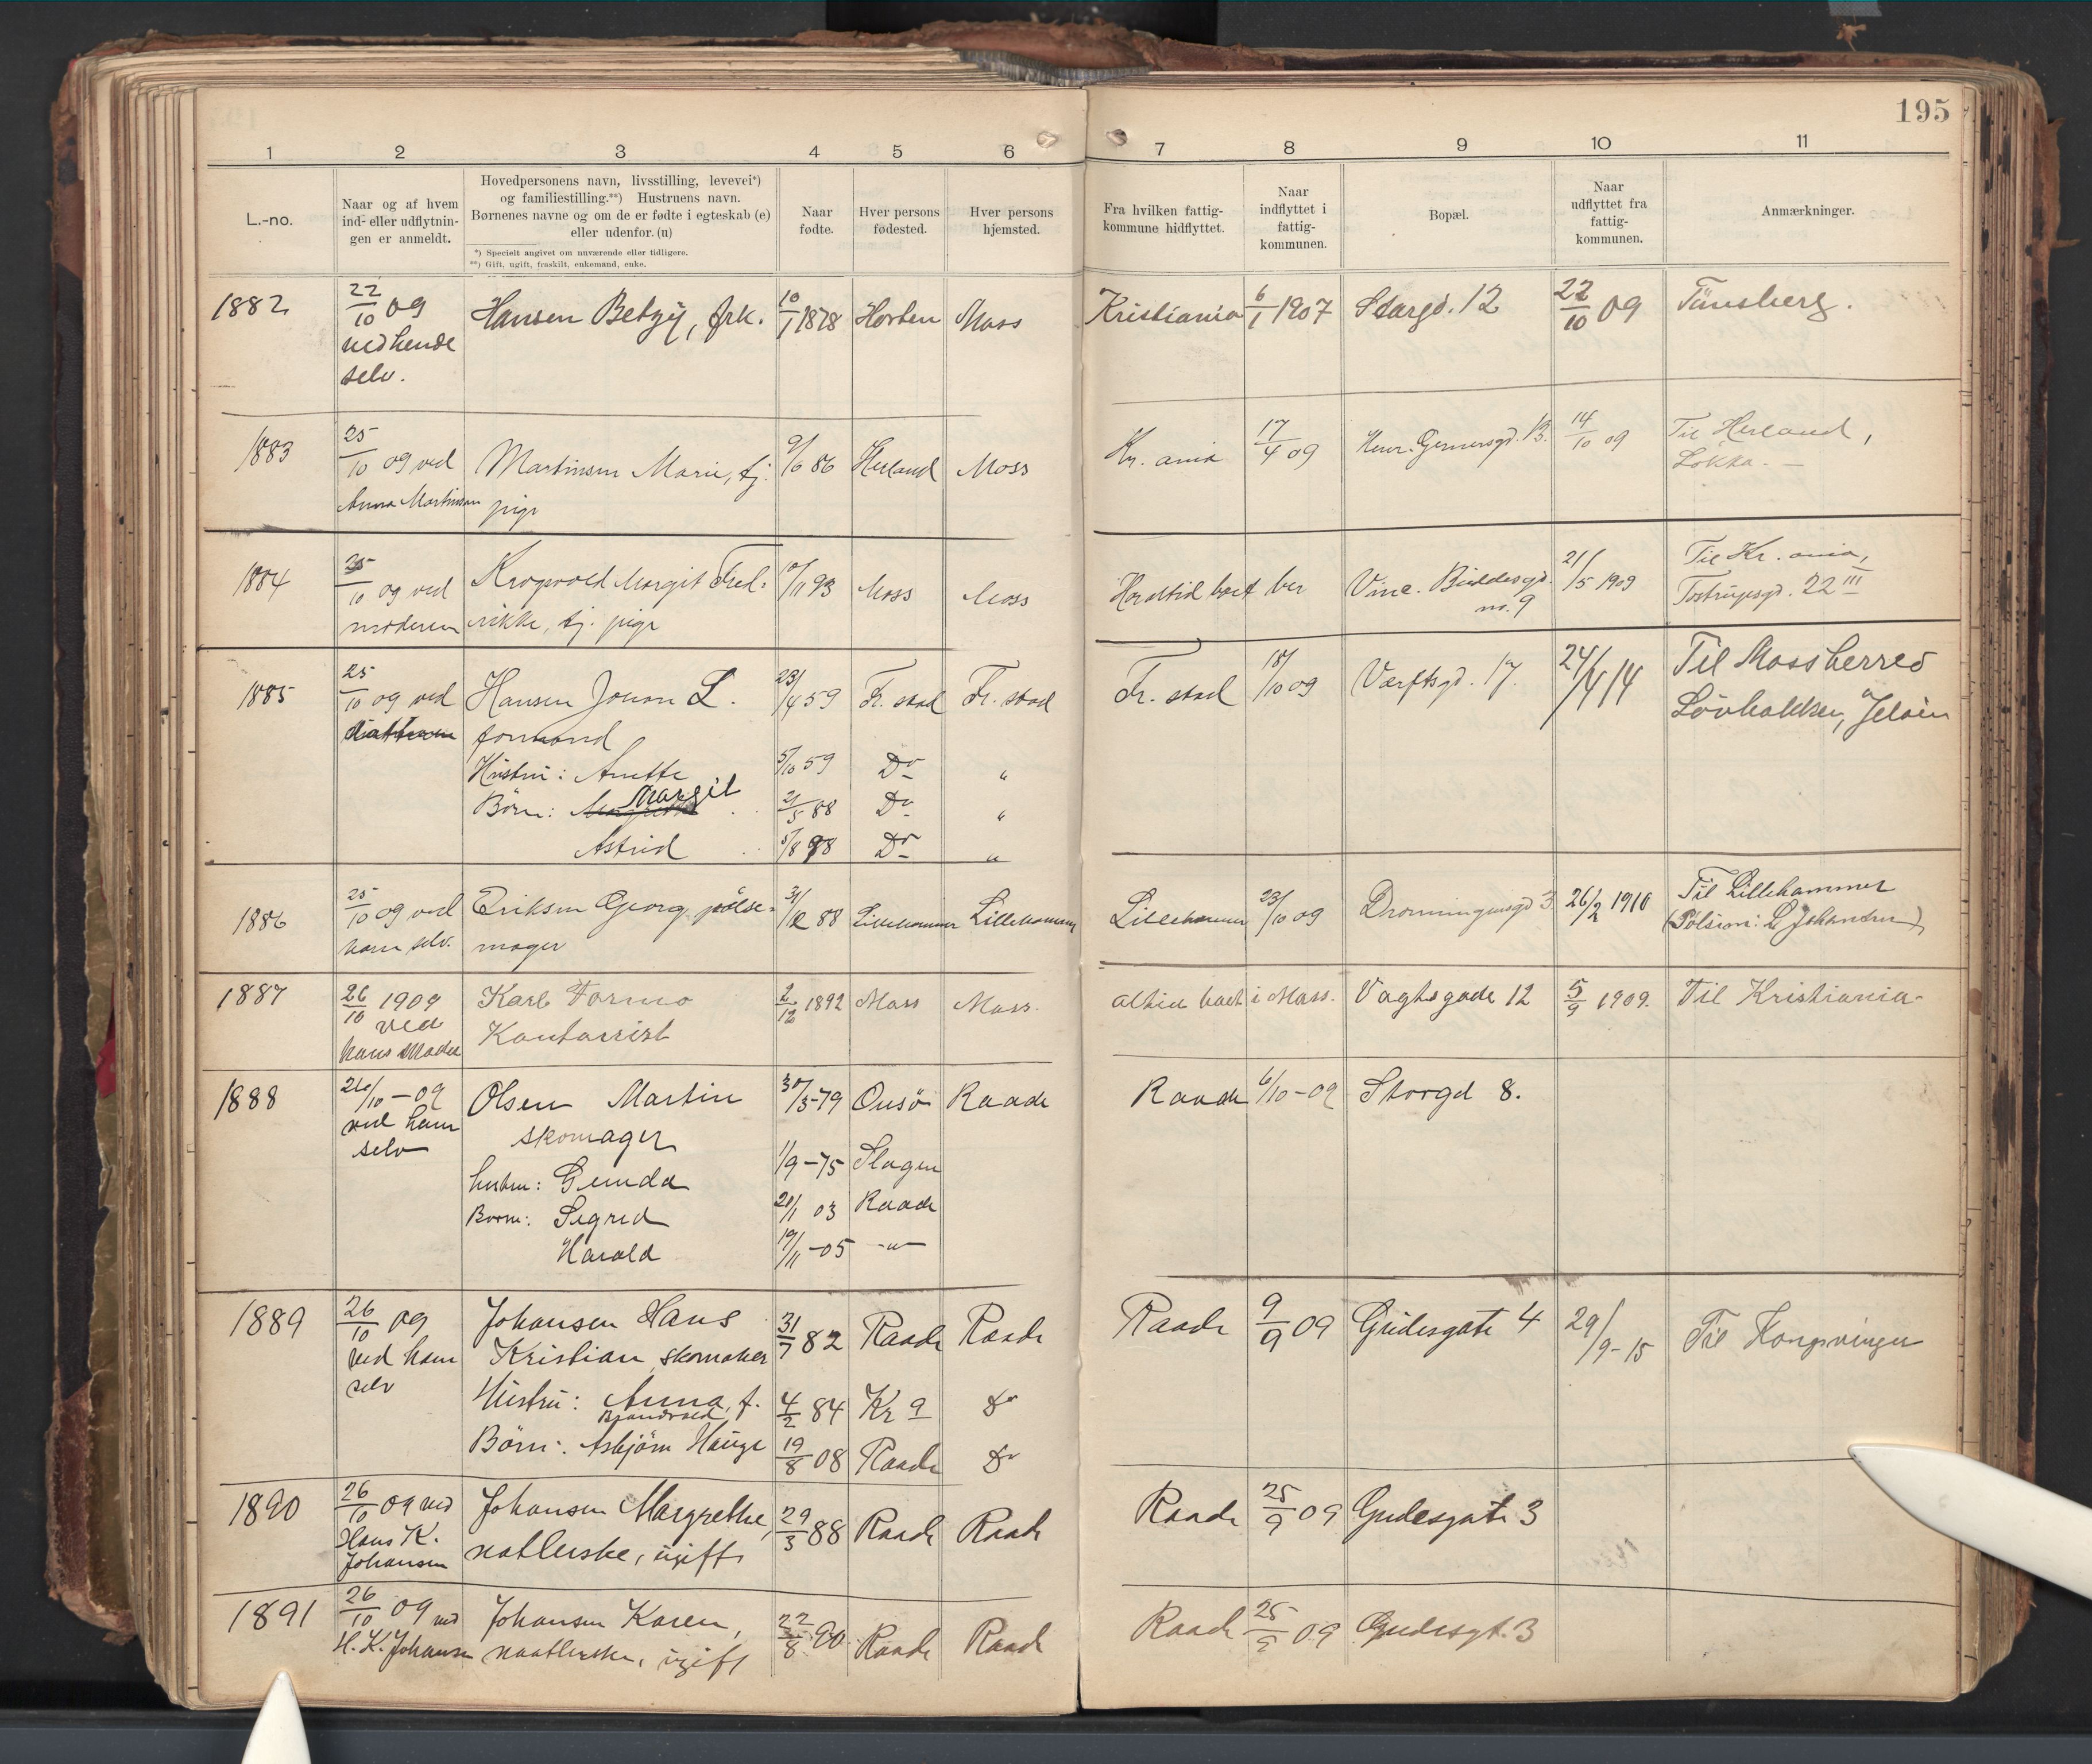 195
1 2 3 4 5 6 7 8 9 10 11
L.-no.
Naar og af hvem
ind- eller udflytnin-
gen er anmeldt.
Hovedpersonens navn, livsstilling, levevei*)
og familiestilling.**) Hustruens navn.
Børnenes navne og om de er fødte i egteskab (e)
eller udenfor. (u)
*) Specielt angivet om nuværende eller tidligere.
**) Gift, ugift, fraskilt, enkemand, enke.
Naar
fødte.
Hver persons
fødested.
Hver persons
hjemsted.
Fra hvilken fattig-
kommune hidflyttet.
Naar
indflyttet i
fattig-
kommunen.
Bopæl.
Naar
udflyttet fra
fattig-
kommunen.
Anmærkninger.
1882 22/10 09 Hansen Betzy, frk. 10/1 1878 Horten Moss Kristiania 6/1 1907 Storgd. 12 22/10 09 Tünsberg.
ved hende
selv.
1883 25/10 09 ved Martinsen Marie, tj. 9/6 86 Moss Kr. ania 17/4 09 Henr. Gernersgd. 13. 14/10 09 Til
Anna Martinsen pige Løkka. —
1884 25/10 09 ved Margit Fred- 10/11 93 Moss Moss Har altid boet her Vinc. Buddesgd. 21/5 1909 Til Kr. ania,
moderen rikke, tj. pige no. 9 Tostrupsgd. 22 III
1885 25/10 09 ved Hansen Johan L. 23/4 59 Fr. stad Fr. stad Fr. stad 18/10 09 Værftsgd. 17. 24/4 14 Til Moss herred
formand Jeløen
Hustru: Anette 5/10 59 Do "
Børn: Margit 21/5 88 Do "
Astrid 5/8 98 Do "
1886 25/10 09 ved Eriksen Georg, pølse- 88 Lillehammer Lillehammer Lillehammer 23/10 09 Dronningensgd 3 26/2 1910 Til Lillehammer
ham selv. mager (Pølsem: L Johansen)
1887 26/10 1909 Karl Formo 2/12 1892 Moss Moss. altid boet i Moss. Vogtsgade 12 5/9 1909. Til Kristiania-
ved Kontorrist
hans Moder
1888 26/10 — 09 Olsen Martin 30/3-79 Onsö Raade Raade 6/10 - 09 Storgd 8.
ved ham skomager
selv
hustru: Gunda 1/9 - 75 Slagen
Børn: Sigrid 20/1 03 Raade
Harald 19/11 - 05 - " -
1889 26/10 09 Johansen Hans 31/7 82 Raade Raade Raade 9/9 09 Gudesgate 4 29/9-15 Til Kongsvinger
ved ham Kristian skomaker
selv
Hustru: Anna, f. 4/2 84 Kr a Do
Børn: Asbjørn Hauge 19/8 08 Raade Do
1890 26/10 09 ved Johansen Margrethe, 29/3 88 Raade Raade Raade 25/9 09 Gudesgate 3
Hans K. natlerske, ugift
Johansen
1891 26/10 09 ved Johansen Karen, 22/8 90 Raade Raade Raade 25/9 09 Gudesgt. 3
H. K. Johansen naatlerske, ugift